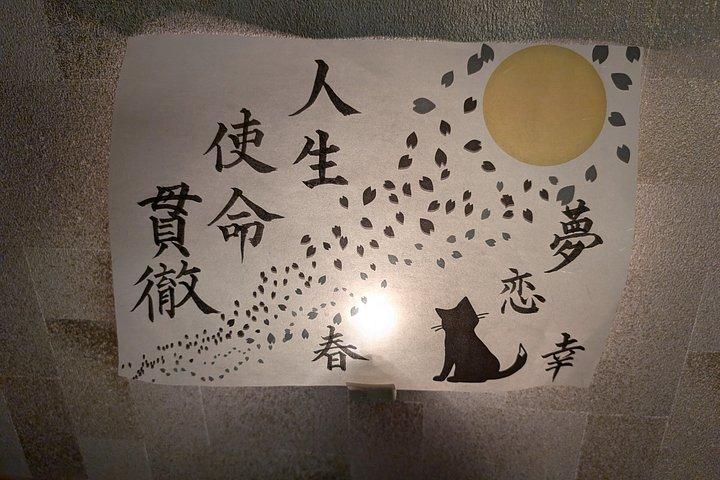 人生
使命
貫徹
夢
恋
幸
春